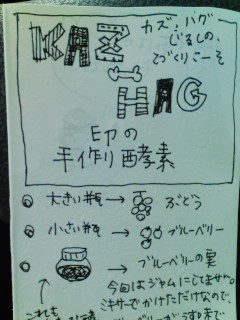 KAZ
HAG
カズ、ハグ
じるしの、
てづくりこーそ
印の
手作り酵素
大きい瓶 → ぶどう
小さい瓶 → ブルーベリー
→ ブルーベリーの実
今回はジャムにしてません。
ミキサーでかけただけなので、
これも